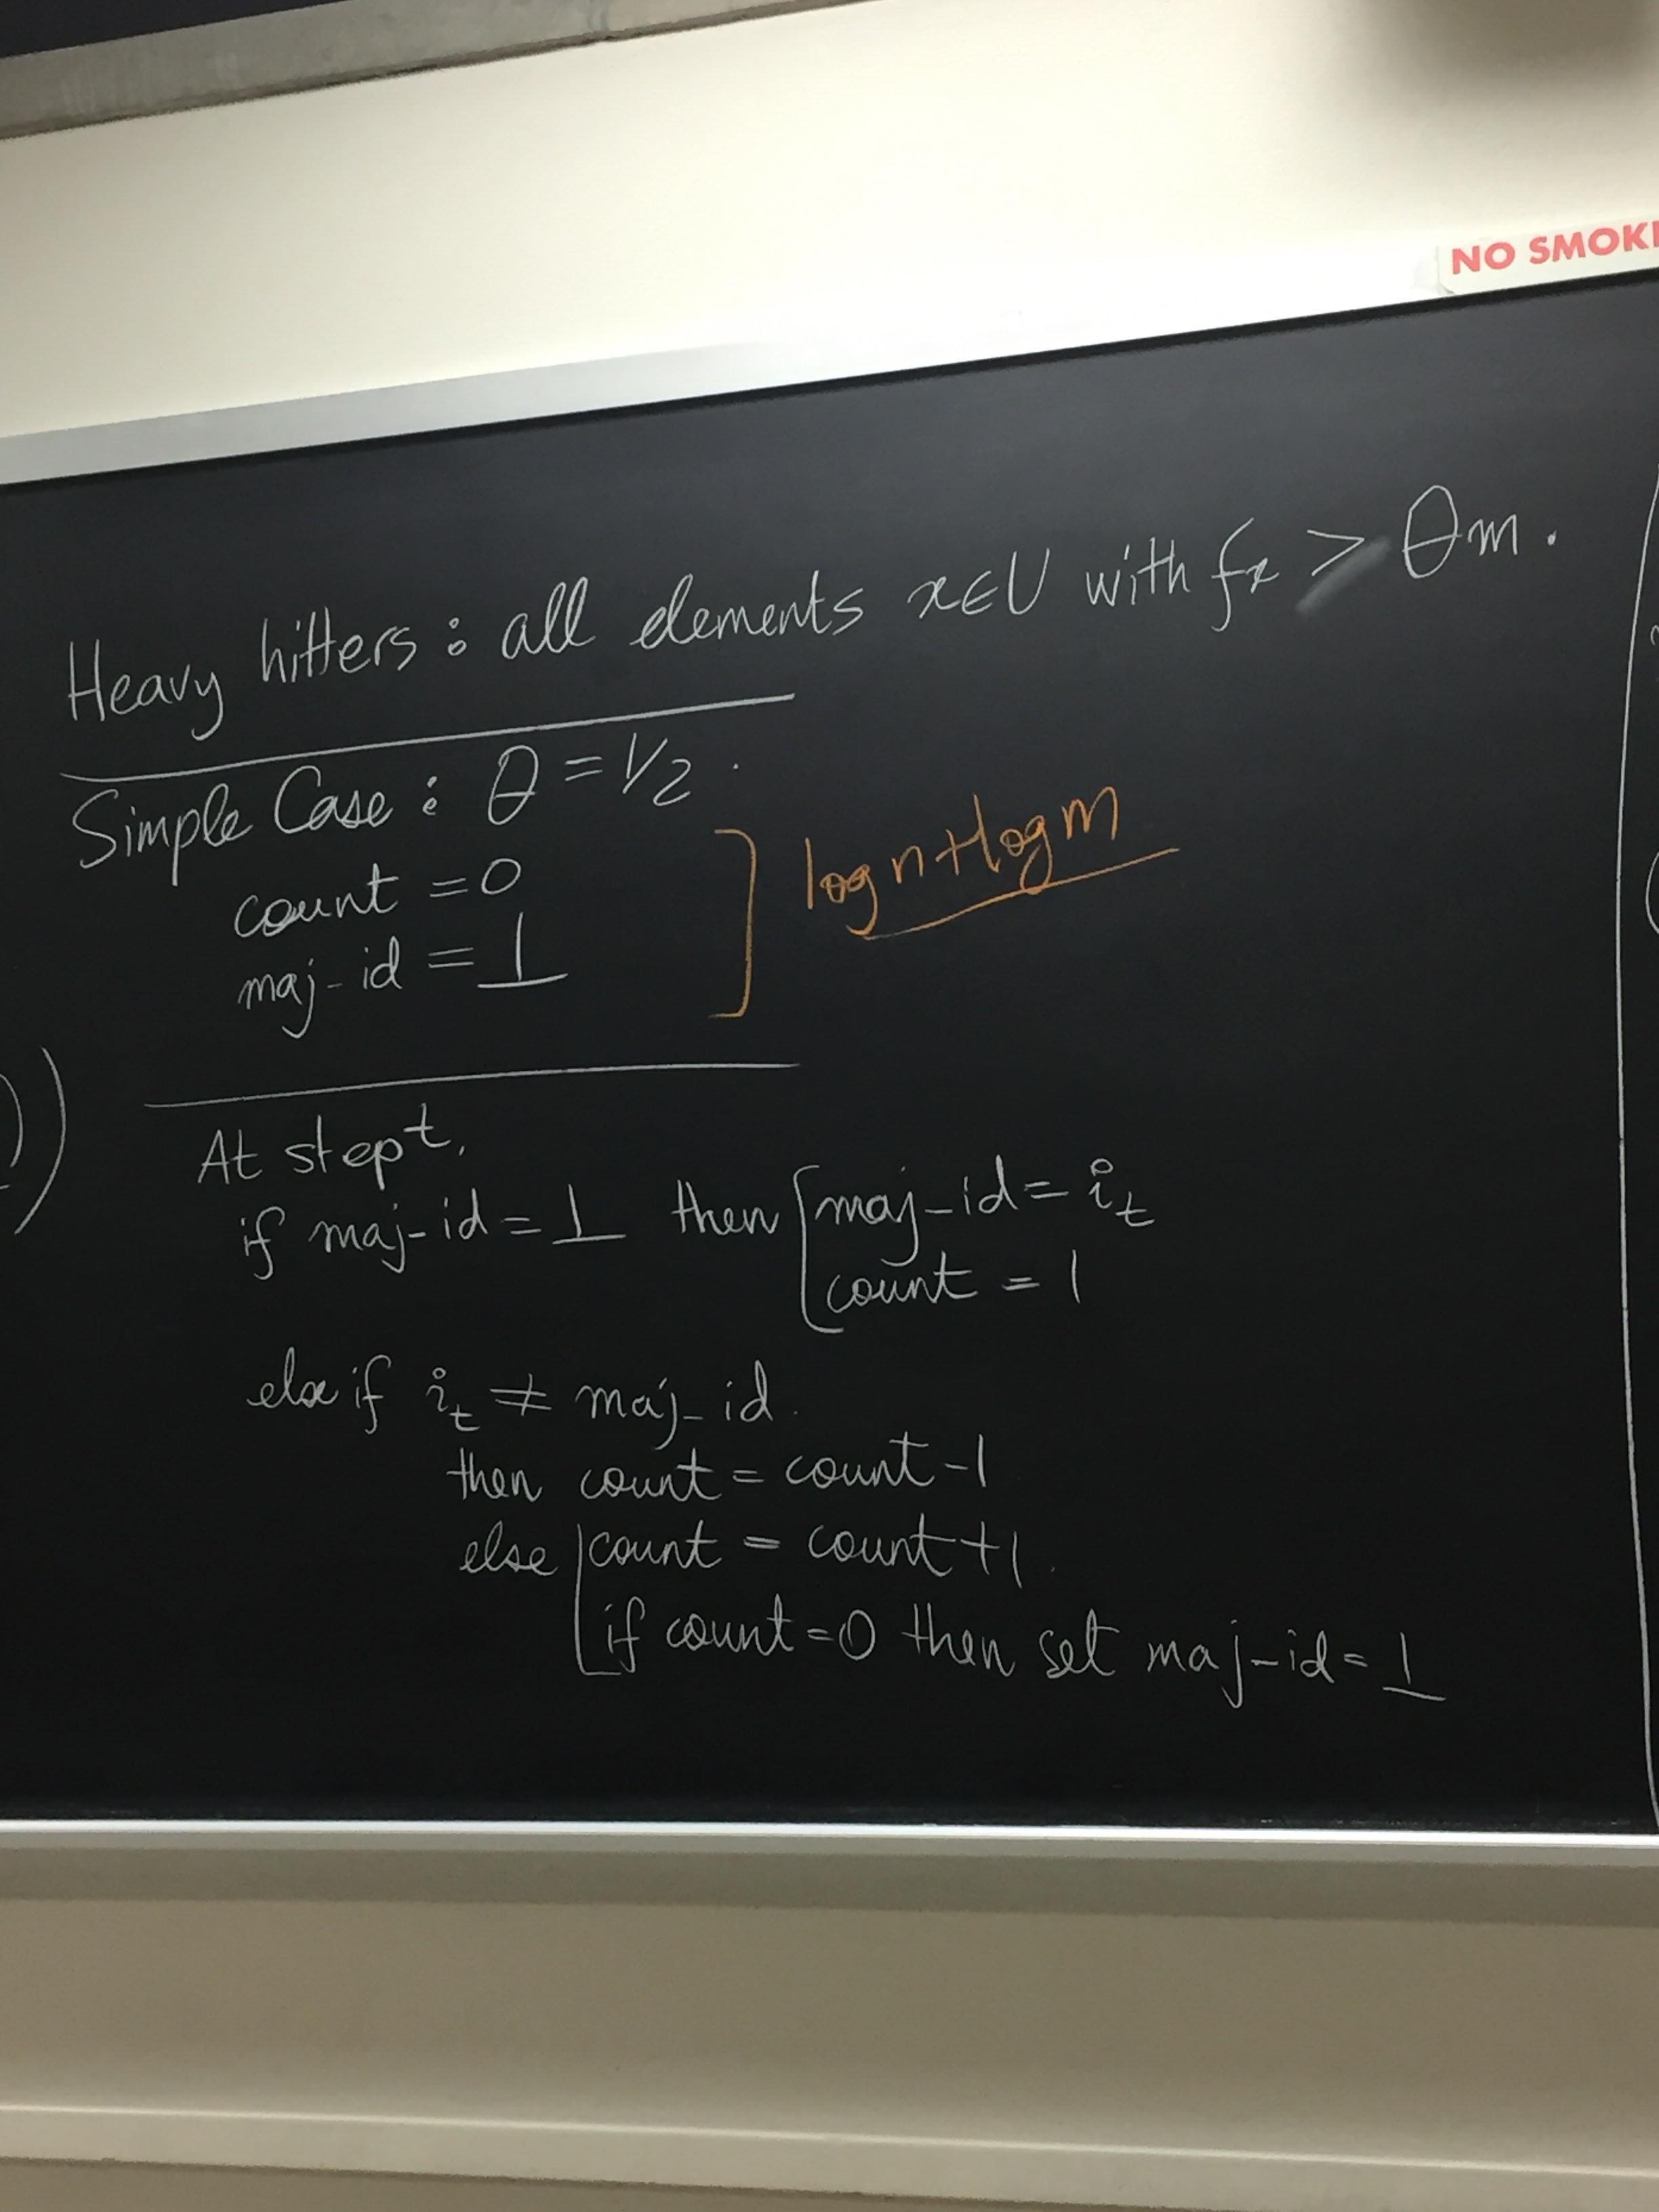 NO SMOKI
Heavy hitters: all elements x∈U with fx > θm.
Simple Case: θ = 1/2.
count = 0
maj-id = ⊥
log n + log m
At step t,
if maj-id = ⊥ then maj-id = it
count = 1
else if it ≠ maj-id.
then count = count - 1
else count = count + 1
if count = 0 then set maj-id = ⊥